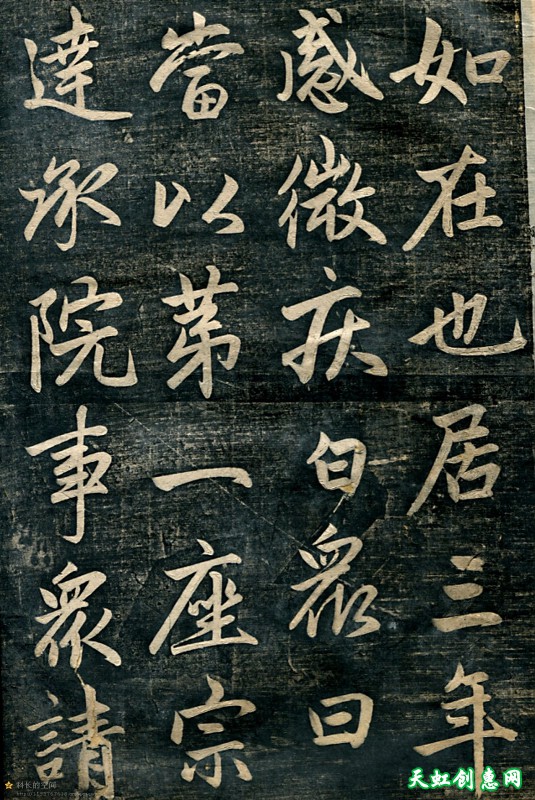 如在也居三年
感微疾白衆曰
當以苐一座宗
達承院事衆請
天虹创惠网
科长的空间